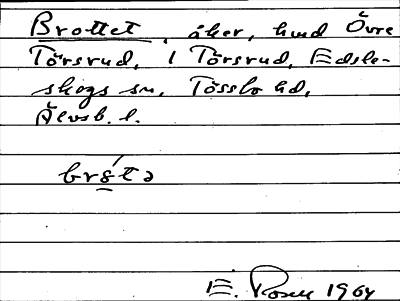 Brottet, åker, hmd Övre
Törsrud, 1 Törsrud, Edsle-
skogs sn, Tössbo hd,
Älvsb. l.
brǿtə
E. Rosen 1964